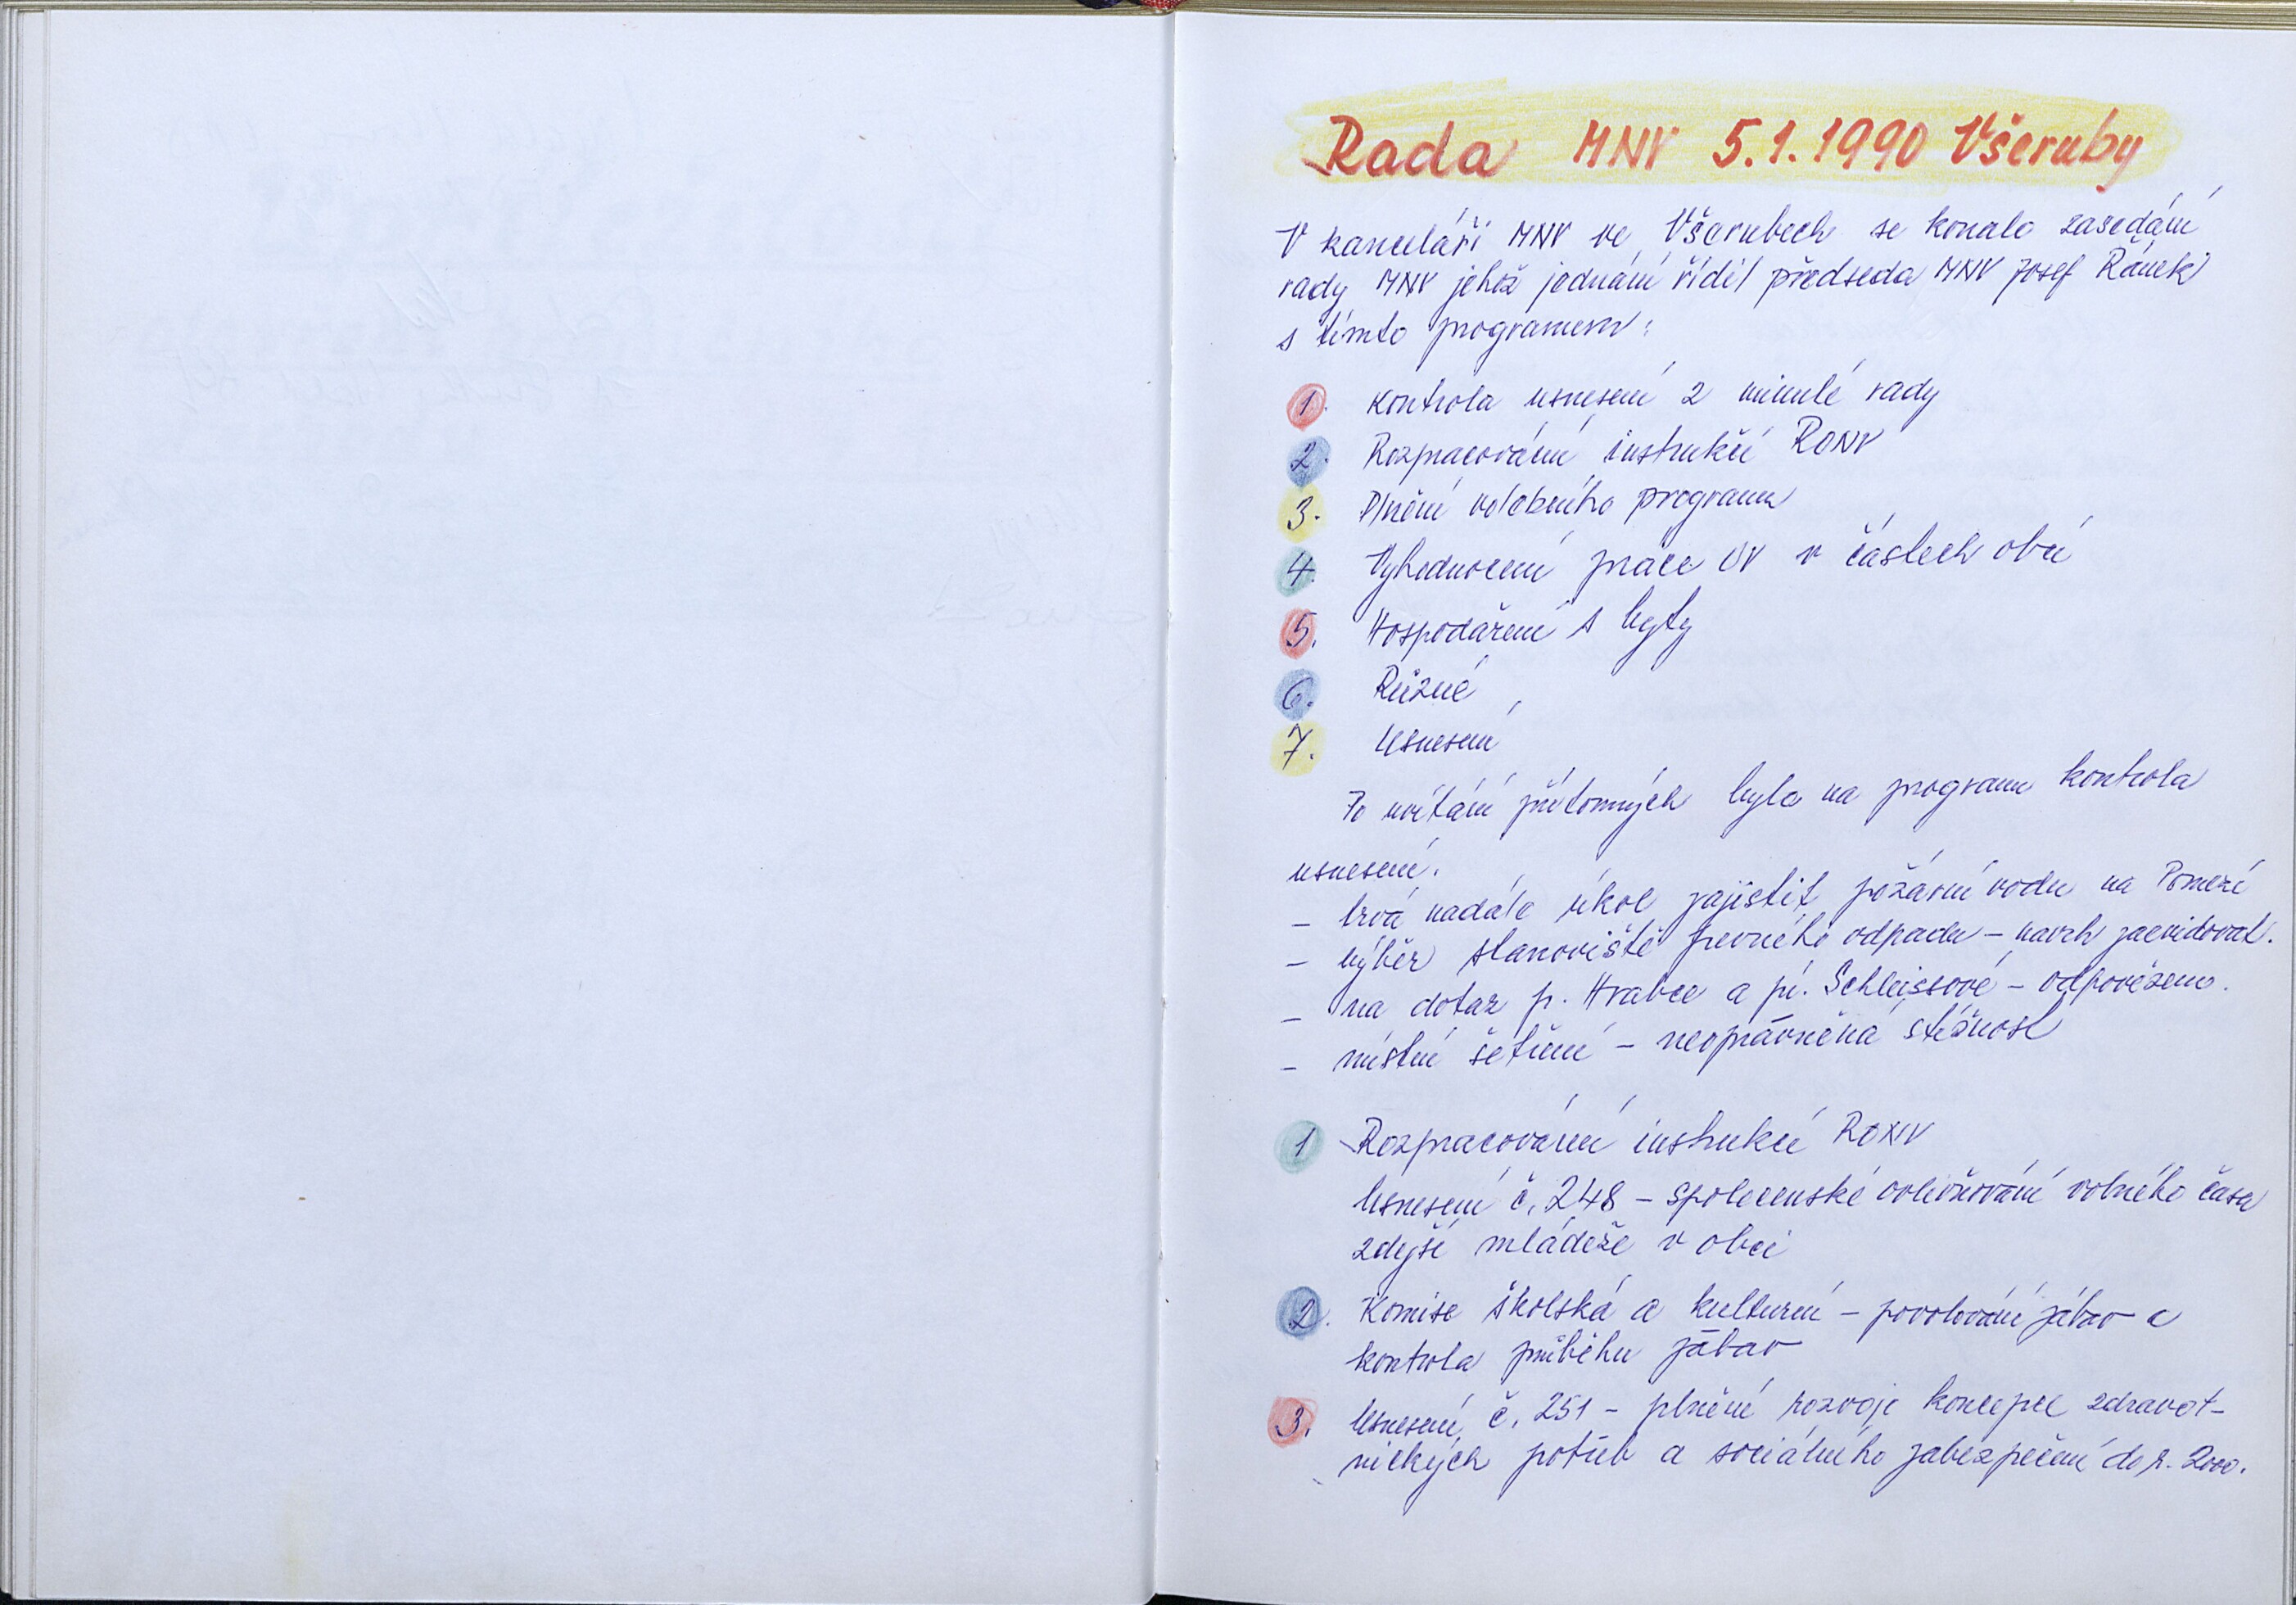 Rada MNV 5.1.1990 Všeruby
V kanceláři MNV ve Všerubech se konalo zasedání
rady MNV jehož jednání řídil předseda MNV Josef
s tímto programem:
1. Kontrola usnesení z minulé rady
2. Rozpracování instrukcí RONV
3. Plnění volebního programu
4. Vyhodnocení práce OV v částech obcí
5. Hospodaření s byty
6. Různé
7. Usnesení
Po uvítání přítomných byla na programu kontrola
usnesení.
- trvá nadále úkol zajistit požární vodu na Pomezí
- výběr stanoviště pevného odpadu - návrh zaevidovat.
- na dotaz p. Hrabce a pí. Schleissové - odpovězeno.
- místní šetření - neoprávněná stížnost
1 Rozpracování instrukcí RONV
Usnesení č. 248 - společenské ovlivňování volného času
zdejší mládeže v obci
2. Komise školská a kulturní - povolování zábav a
kontrola průběhu zábav
3. Usnesení č. 251 - plnění rozvoje koncepce zdravot-
nických potřeb a sociálního zabezpečení do r. 2000.